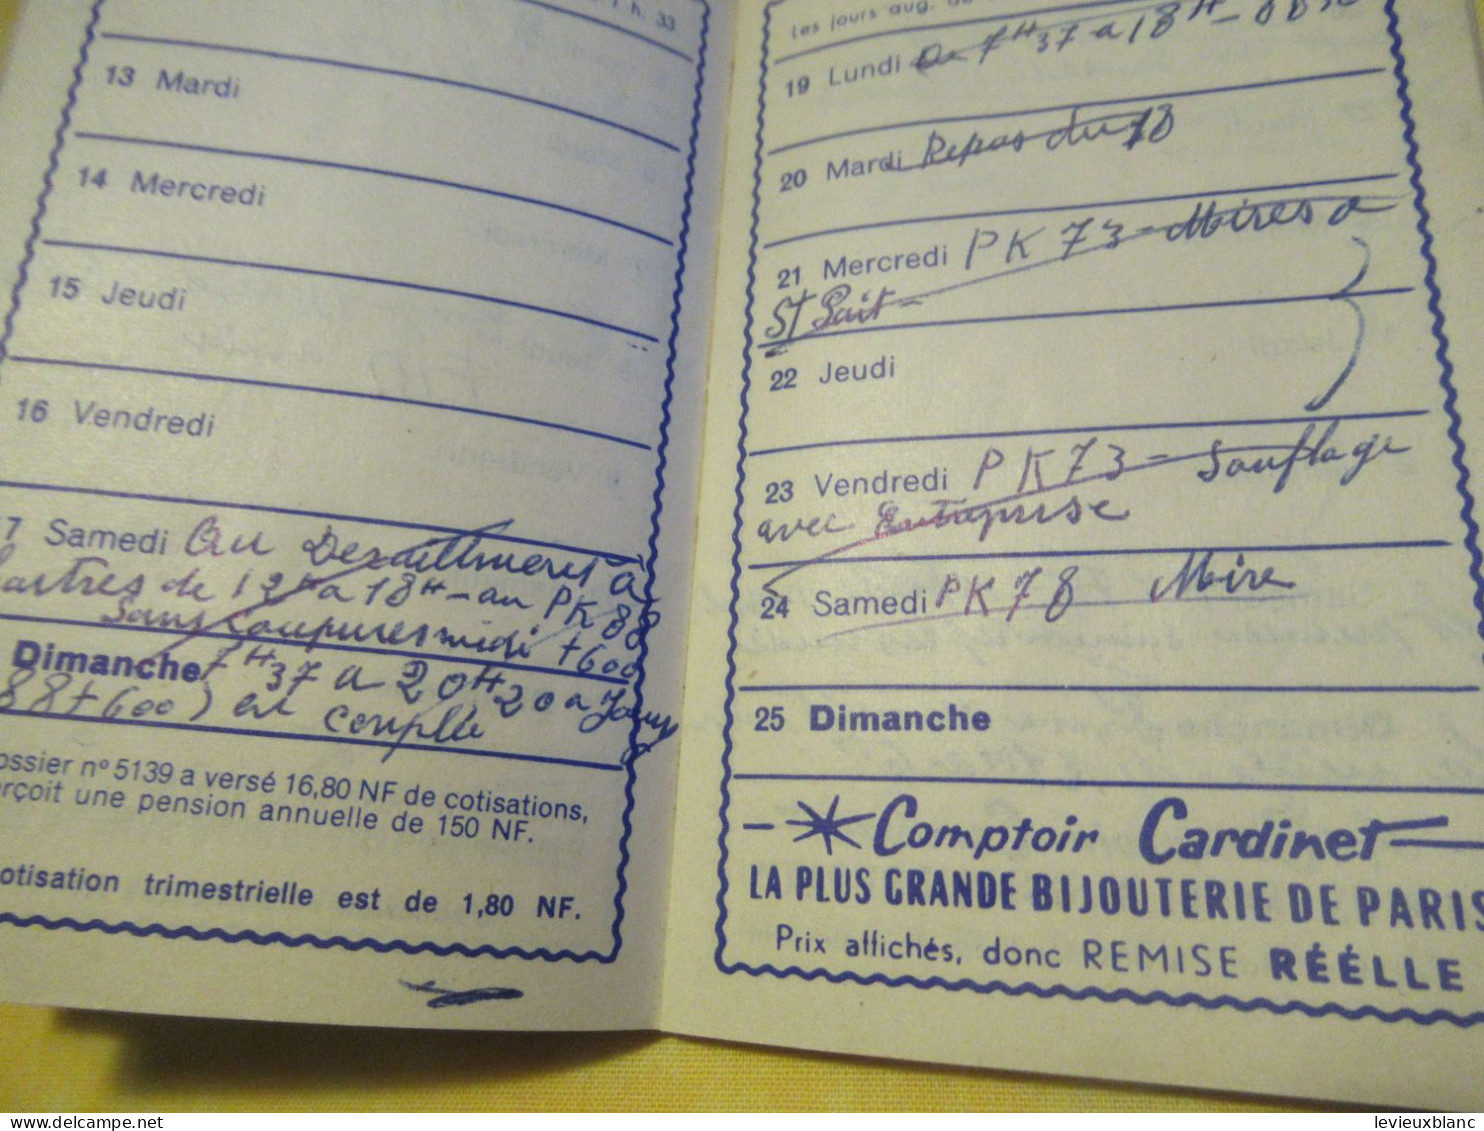 h. 33
13 Mardi
14 Mercredi
15 Jeudi
16 Vendredi
7 Samedi Au Deraillement à
de 12H a 18H - au PK 88
Sans coupures midi + 600
Dimanche 7H37 a 20H20 a
88 + 600) en complle
ossier nº 5139 a versé 16,80 NF de cotisations,
erçoit une pension annuelle de 150 NF.
otisation trimestrielle est de 1,80 NF.
Les jours aug. de
19 Lundi De 7H37 a 18H -
20 Mardi Repas du 18
21 Mercredi PK 73 - Mires a
St Pait -
22 Jeudi
23 Vendredi PK 73 = Souflage
avec Entreprise
24 Samedi PK 78 Mire
25 Dimanche
Comptoir Cardinet
LA PLUS GRANDE BIJOUTERIE DE PARIS
Prix affichés, donc REMISE RÉÉLLE
levieuxblanc
delcampe.net